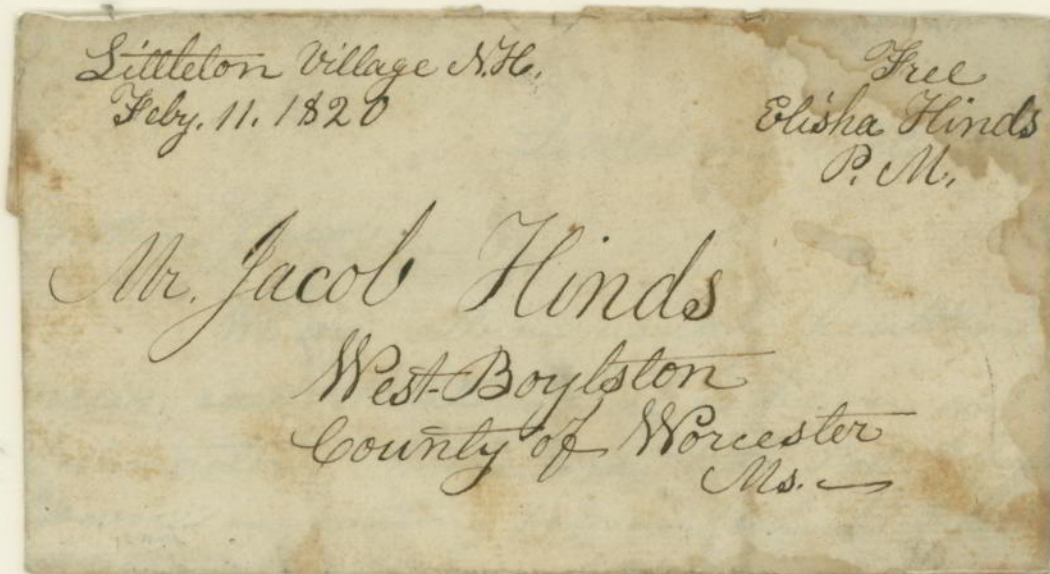 Littleton Village N.H.
Feby. 11. 1820
Free
Elisha Hinds
P. M.
Mr. Jacob Hinds
West-Boylston
County of Worcester
Ms.